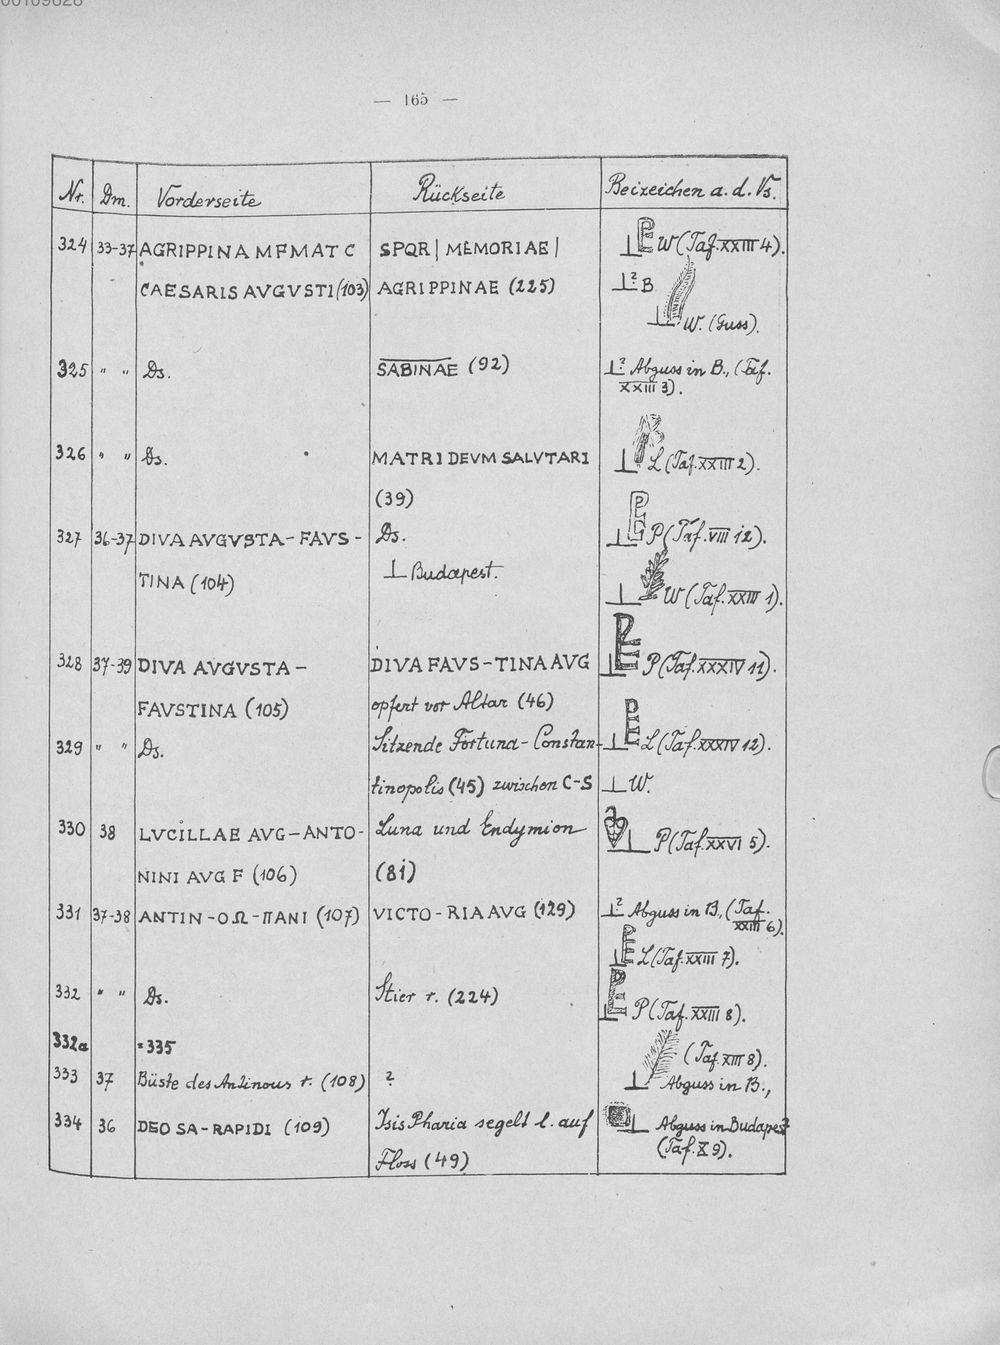 — 165 —
Nr. Dm. Vorderseite Rückseite Beizeichen a. d. Vs.
324 33-37 AGRIPPINA M F MAT C SPQR | MEMORIAE | ⊥ PE W (Taf. XXIII 4).
CAESARIS AVGVSTI (103) AGRIPPINAE (225) ⊥? B
⊥ W. (Guss).
325 " " Ds. SABINAE (92) ⊥? Abguss in B., (Taf.
XXIII 3).
326 " " Ds. MATRI DEVM SALVTARI ⊥ L (Taf. XXIII 2).
(39)
327 36-37 DIVA AVGVSTA - FAVS - Ds. ⊥ PE P (Taf. VIII 12).
TINA (104) ⊥ Budapest. ⊥ W (Taf. XXIII 1).
328 37-39 DIVA AVGVSTA - DIVA FAVS - TINA AVG ⊥ PE P (Taf. XXXIV 11).
FAVSTINA (105) opfert vor Altar (46)
329 " " Ds. Sitzende Fortuna - Constan- ⊥ PE L (Taf. XXXIV 12).
tinopolis (45) zwischen C-S ⊥ W.
330 38 LVCILLAE AVG - ANTO - Luna und Endymion ⊥ P (Taf. XXVI 5).
NINI AVG F (106) (81)
331 37-38 ANTIN - OΩ - ΠANI (107) VICTO - RIA AVG (129) ⊥? Abguss in B., (Taf.
XXIII 6).
⊥ PE L (Taf. XXIII 7).
332 " " Ds. Stier r. (224) ⊥ PE P (Taf. XXIII 8).
332a = 335 (Taf. XIII 8).
333 37 Büste des Antinous r. (108) ? ⊥ Abguss in B.,
334 36 DEO SA - RAPIDI (109) Isis Pharia segelt l. auf ⊥ Abguss in Budapest
Floss (49) (Taf. X 9).